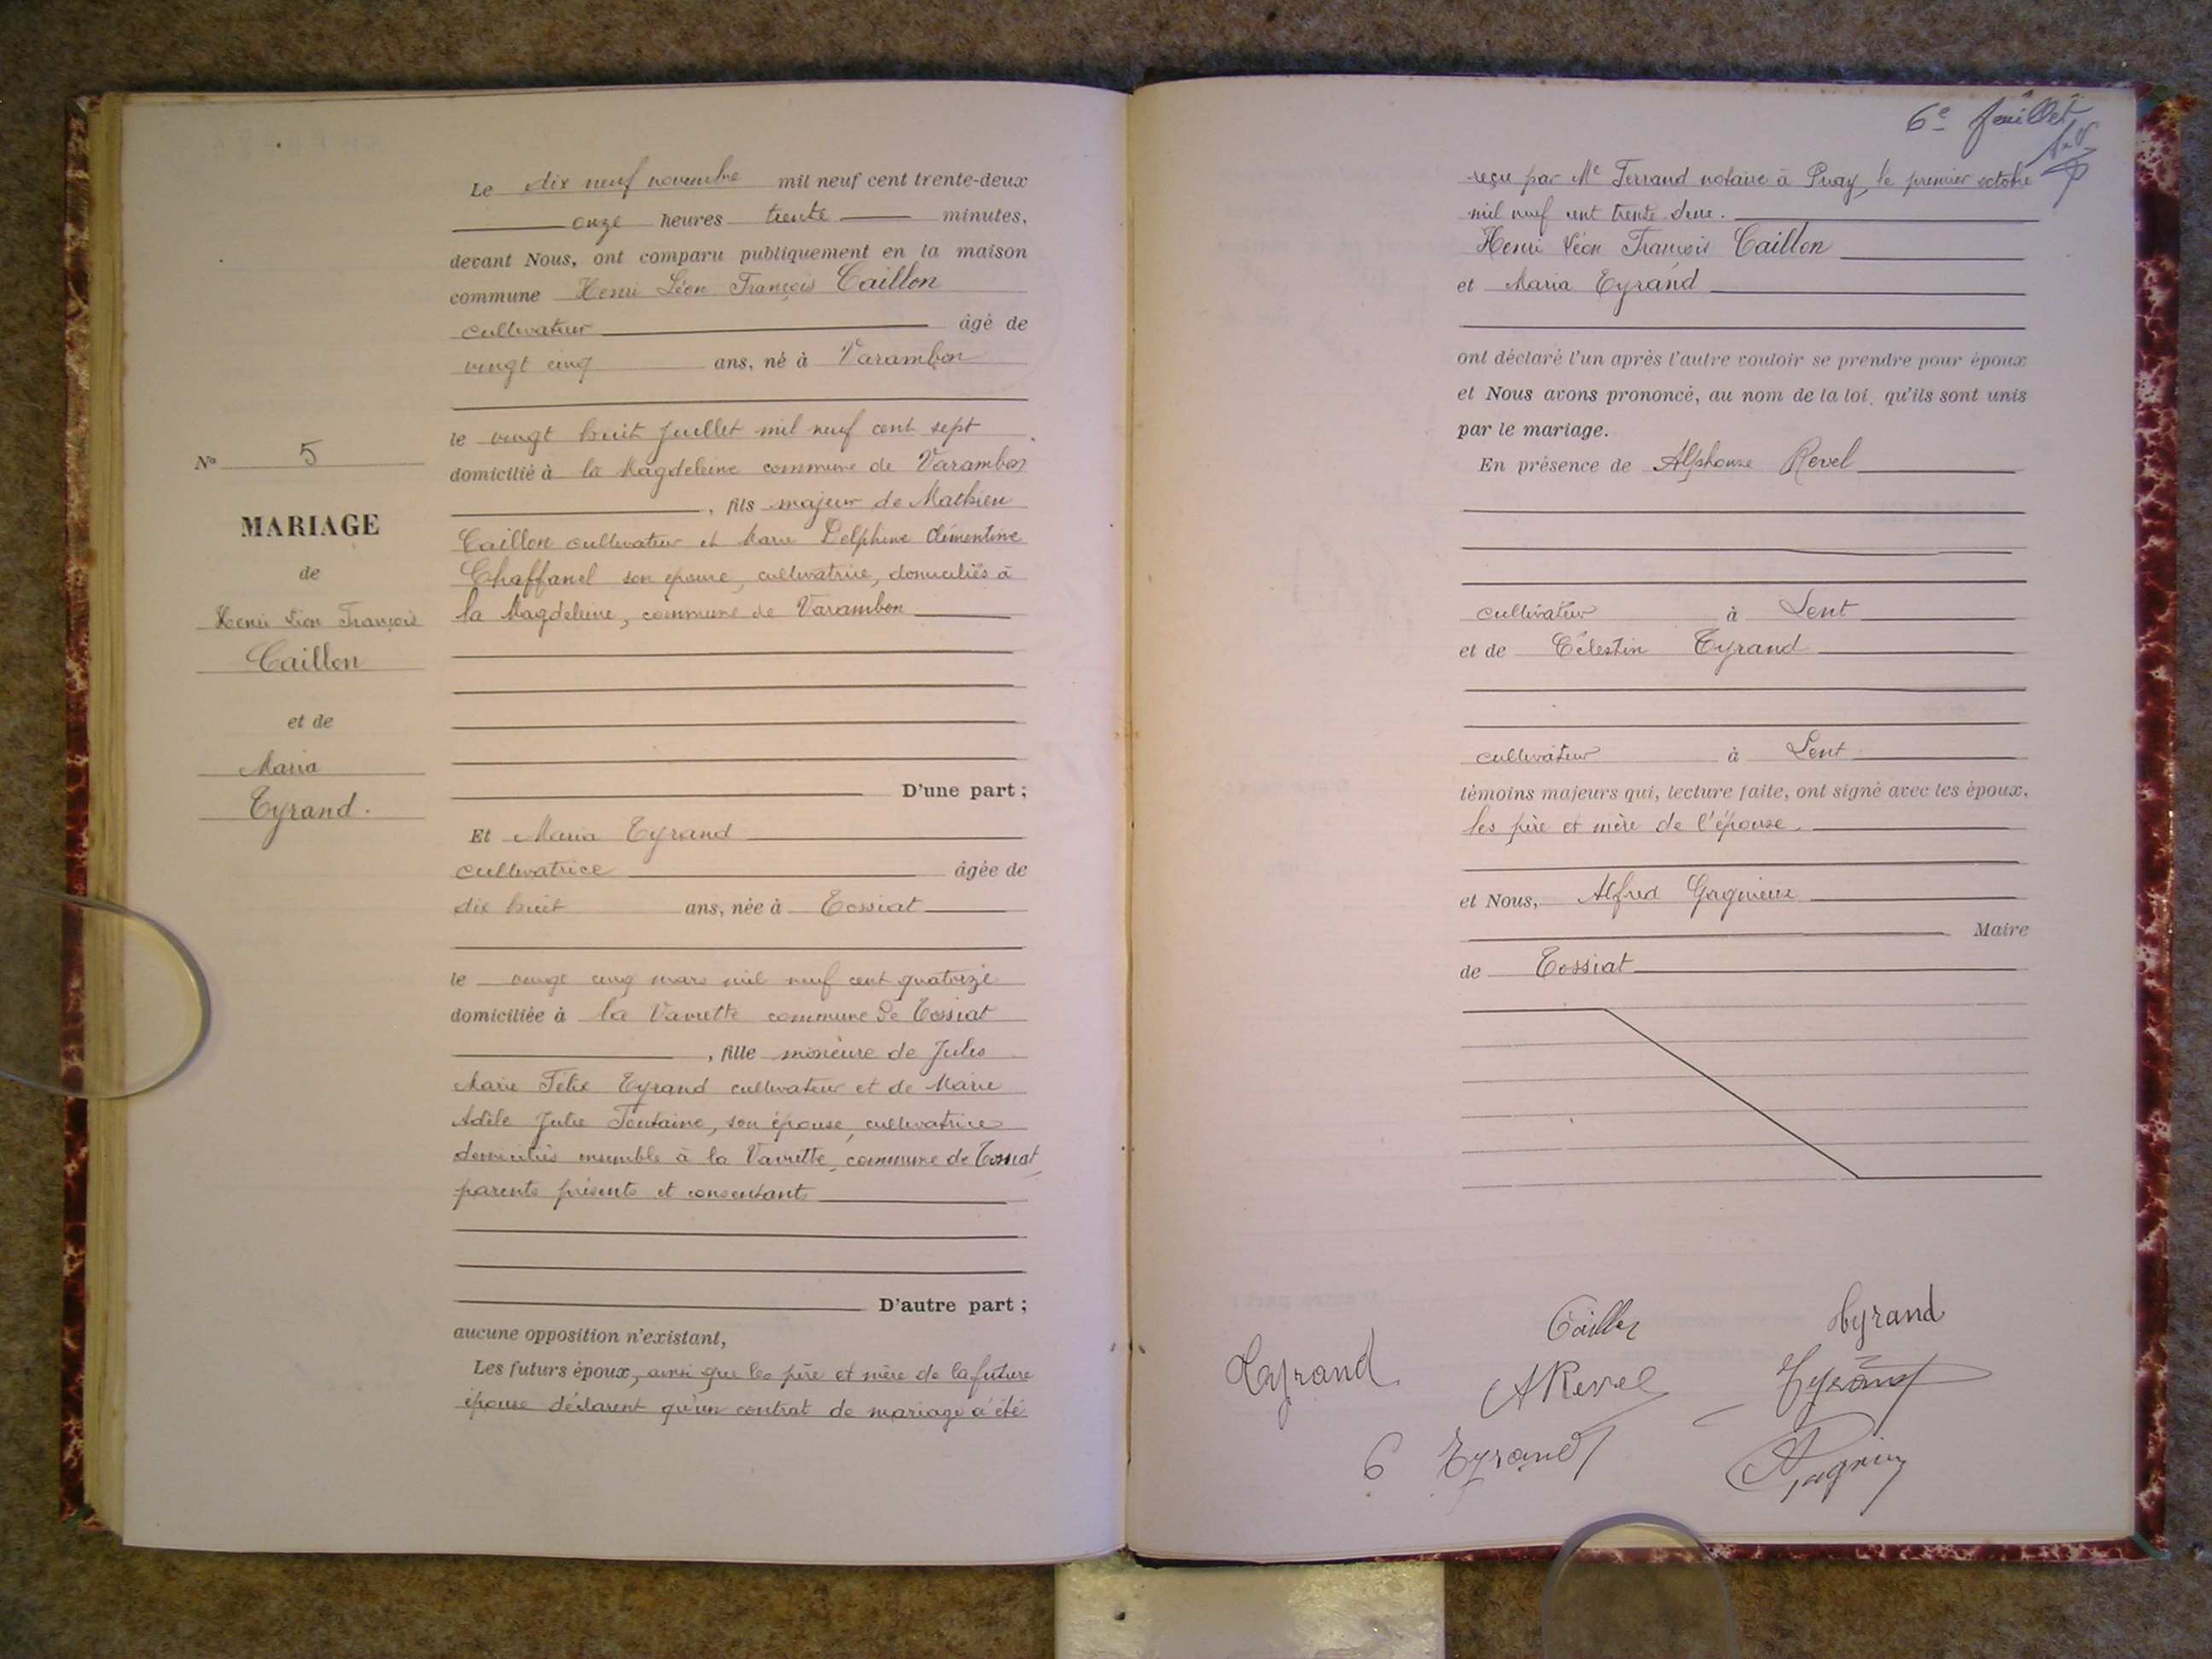 N° 5
MARIAGE
de
Henri Léon François
Caillon
et de
Maria
Tyrand.
Le dix neuf novembre mil neuf cent trente-deux
onze heures trente minutes,
devant Nous, ont comparu publiquement en la maison
commune Henri Léon François Caillon
cultivateur âgé de
vingt cinq ans, né à Varambon
le vingt huit juillet mil neuf cent sept
domicilié à la Magdeleine commune de Varambon
, fils majeur de Mathieu
Caillon cultivateur et Marie Delphine Clémentine
Chaffanel son épouse, cultivatrice, domiciliés à
la Magdeleine, commune de Varambon
D'une part ;
Et Maria Tyrand
cultivatrice âgée de
dix huit ans, née à Tossiat
le vingt cinq mars mil neuf cent quatorze
domiciliée à la Vavrette commune de Tossiat
, fille mineure de Jules
Marie Félix Tyrand cultivateur et de Marie
Adèle Julie Fontaine, son épouse, cultivatrice
domiciliés ensemble à la Vavrette, commune de Tossiat,
parents présents et consentants
D'autre part ;
aucune opposition n'existant,
Les futurs époux, ainsi que les père et mère de la future
épouse déclarent qu'un contrat de mariage a été
6e feuillet
reçu par Me Ferrand notaire à Druillat, le premier octobre
mil neuf cent trente deux.
Henri Léon François Caillon
et Maria Tyrand
ont déclaré l'un après l'autre vouloir se prendre pour époux
et Nous avons prononcé, au nom de la loi, qu'ils sont unis
par le mariage.
En présence de Alphonse Revel
cultivateur à Lent
et de Célestin Tyrand
cultivateur à Lent
témoins majeurs qui, lecture faite, ont signé avec les époux,
les père et mère de l'épouse,
et Nous, Alfred Gagnieux
Maire
de Tossiat
Caillon
Tyrand
Tyrand
A Revel
Tyrand
C Tyrand